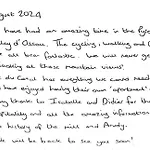 August 2024
have had an amazing time in the Pyre
ley d'Ossau. The cycling, walking and
all been fantastic. We will never ge
looking at these mountain views!
du Canal has everything we could need
have enjoyed having our own 'apartment'.
ng thanks to Isabelle and Didier for th
pitality and all the amazing information
history of the mill and Arudy.
will be back to see you soon!